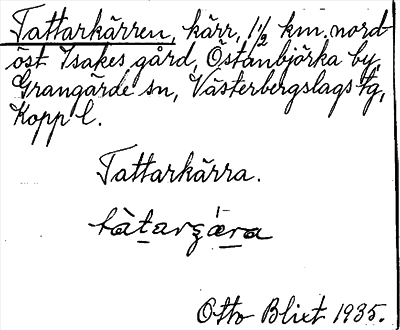 Tattarkärren, kärr, 1½ km. nord-
öst Isakes gård, Östanbjörka by,
Grangärde sn, Västerbergslags tg,
Kopp l.
Tattarkärra.
Otto Blixt 1935.